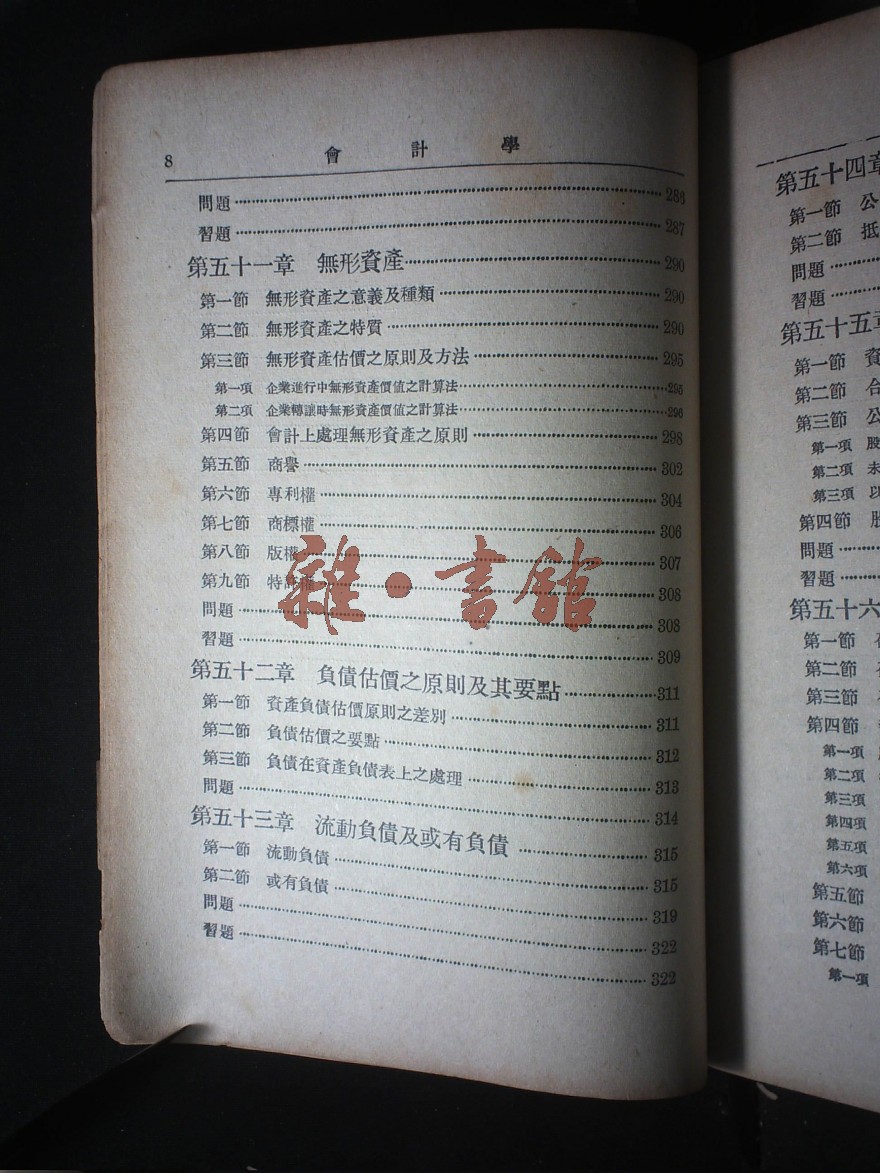 8 會計學
問題 286
習題 287
第五十一章 無形資產 290
第一節 無形資產之意義及種類 290
第二節 無形資產之特質 290
第三節 無形資產估價之原則及方法 295
第一項 企業進行中無形資產價值之計算法 295
第二項 企業轉讓時無形資產價值之計算法 296
第四節 會計上處理無形資產之原則 298
第五節 商譽 302
第六節 專利權 304
第七節 商標權 306
第八節 版權 307
第九節 特許權 308
問題 308
習題 309
第五十二章 負債估價之原則及其要點 311
第一節 資產負債估價原則之差別 311
第二節 負債估價之要點 312
第三節 負債在資產負債表上之處理 313
問題 314
第五十三章 流動負債及或有負債 315
第一節 流動負債 315
第二節 或有負債 319
問題 322
習題 322
雜·書館
第五十四章
第一節 公
第二節 抵
問題
習題
第五十五章
第一節 資
第二節 合
第三節 公
第一項 股
第二項 未
第三項 以
第四節 股
問題
習題
第五十六
第一節
第二節
第三節
第四節
第一項
第二項
第三項
第四項
第五項
第六項
第五節
第六節
第七節
第一項